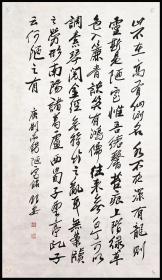 山不在高有仙则名水不在深有龍则
靈斯是陋室惟吾德馨苔痕上階綠草
色入簾青談笑有鴻儒往来無白丁可以
調素琴閲金经無絲竹之亂耳無案牘
之勞形南陽諸葛廬西蜀子雲亭孔子
云何陋之有
唐劉禹錫陋室銘